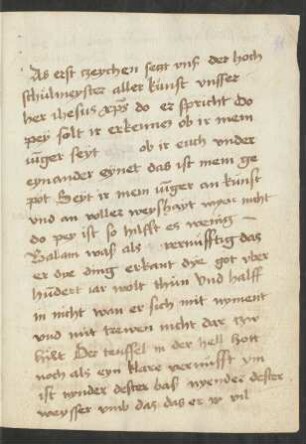 Das erst zeychen setzt vns der hoch
schulmeyster aller kunst vnsser
her ihesus xps do er spricht Do
pey solt ir erkennen ob ir mein
iũger seyt ob ir euch vnder
eynander eynet das ist mein ge
pot Seyt ir mein iũger an kũnst
vnd an voller weyshayt wyen nicht
do pey ist so hilfft es wenig
Balam was als vernũfftig das
er dye ding erkant dye got vber
hũdert iar wolt thũn Vnd halff
in nicht wan er sich mit nyment
vnd mit trewen nicht dar
hilt Der teuffel in der hell hott
noch als eyn klare vernũfft ym
ist nynder dester bas nyender dester
weysser vmb das das er vil